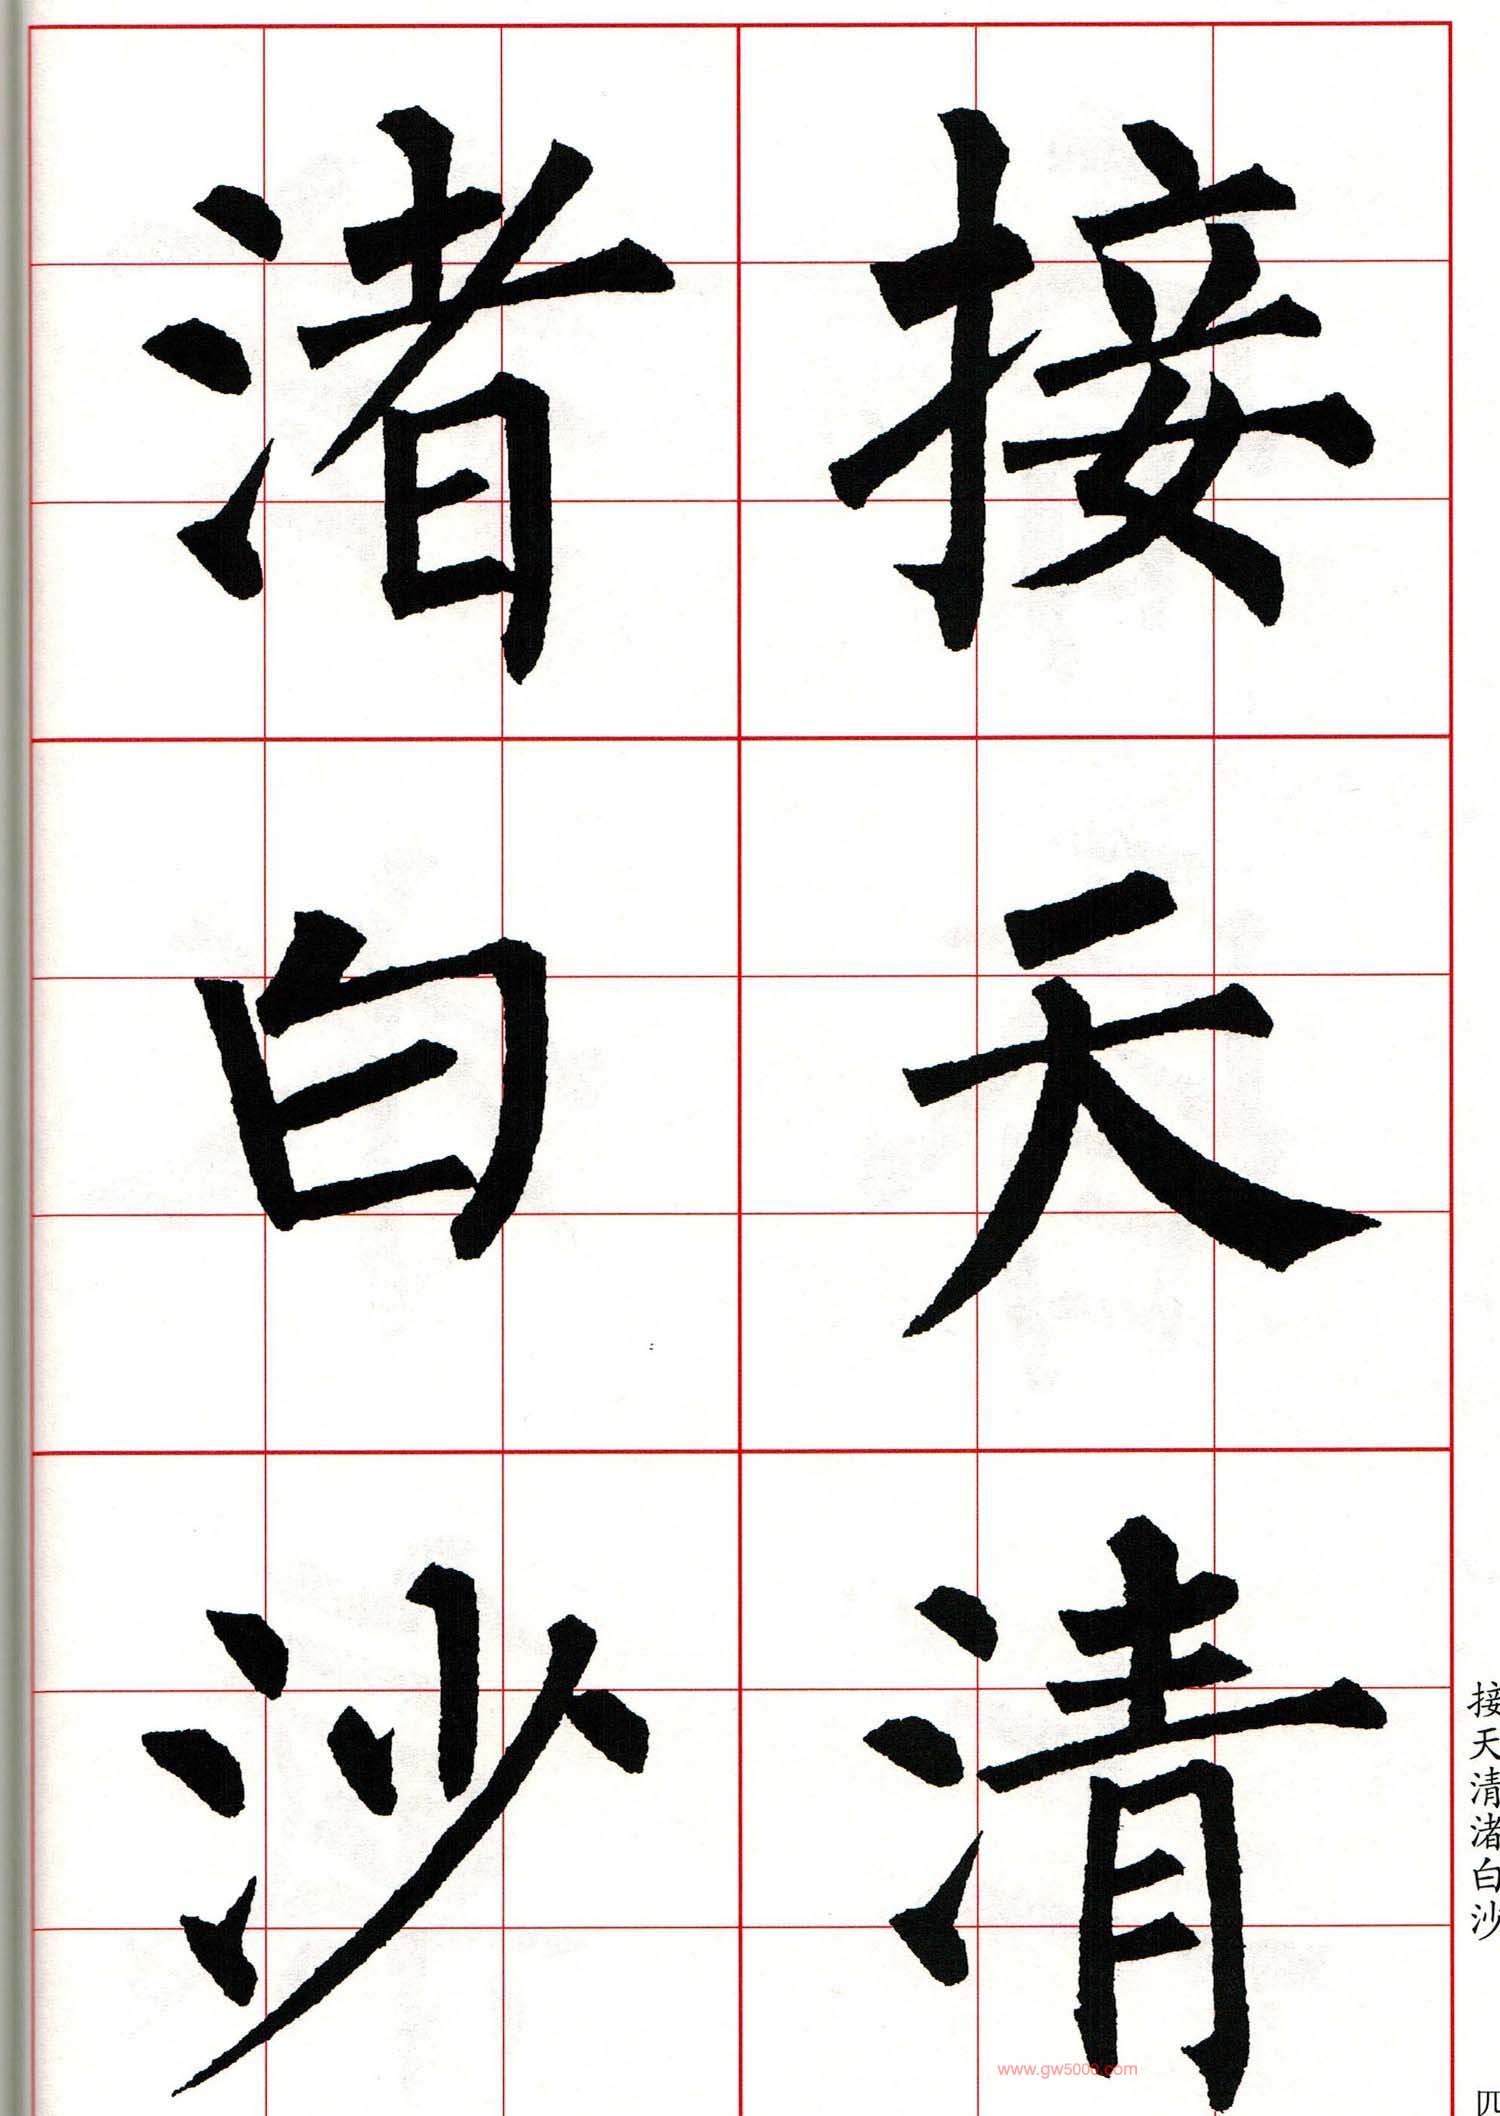 接天清
渚白沙
接天清渚白沙
四
www.gw5000.com